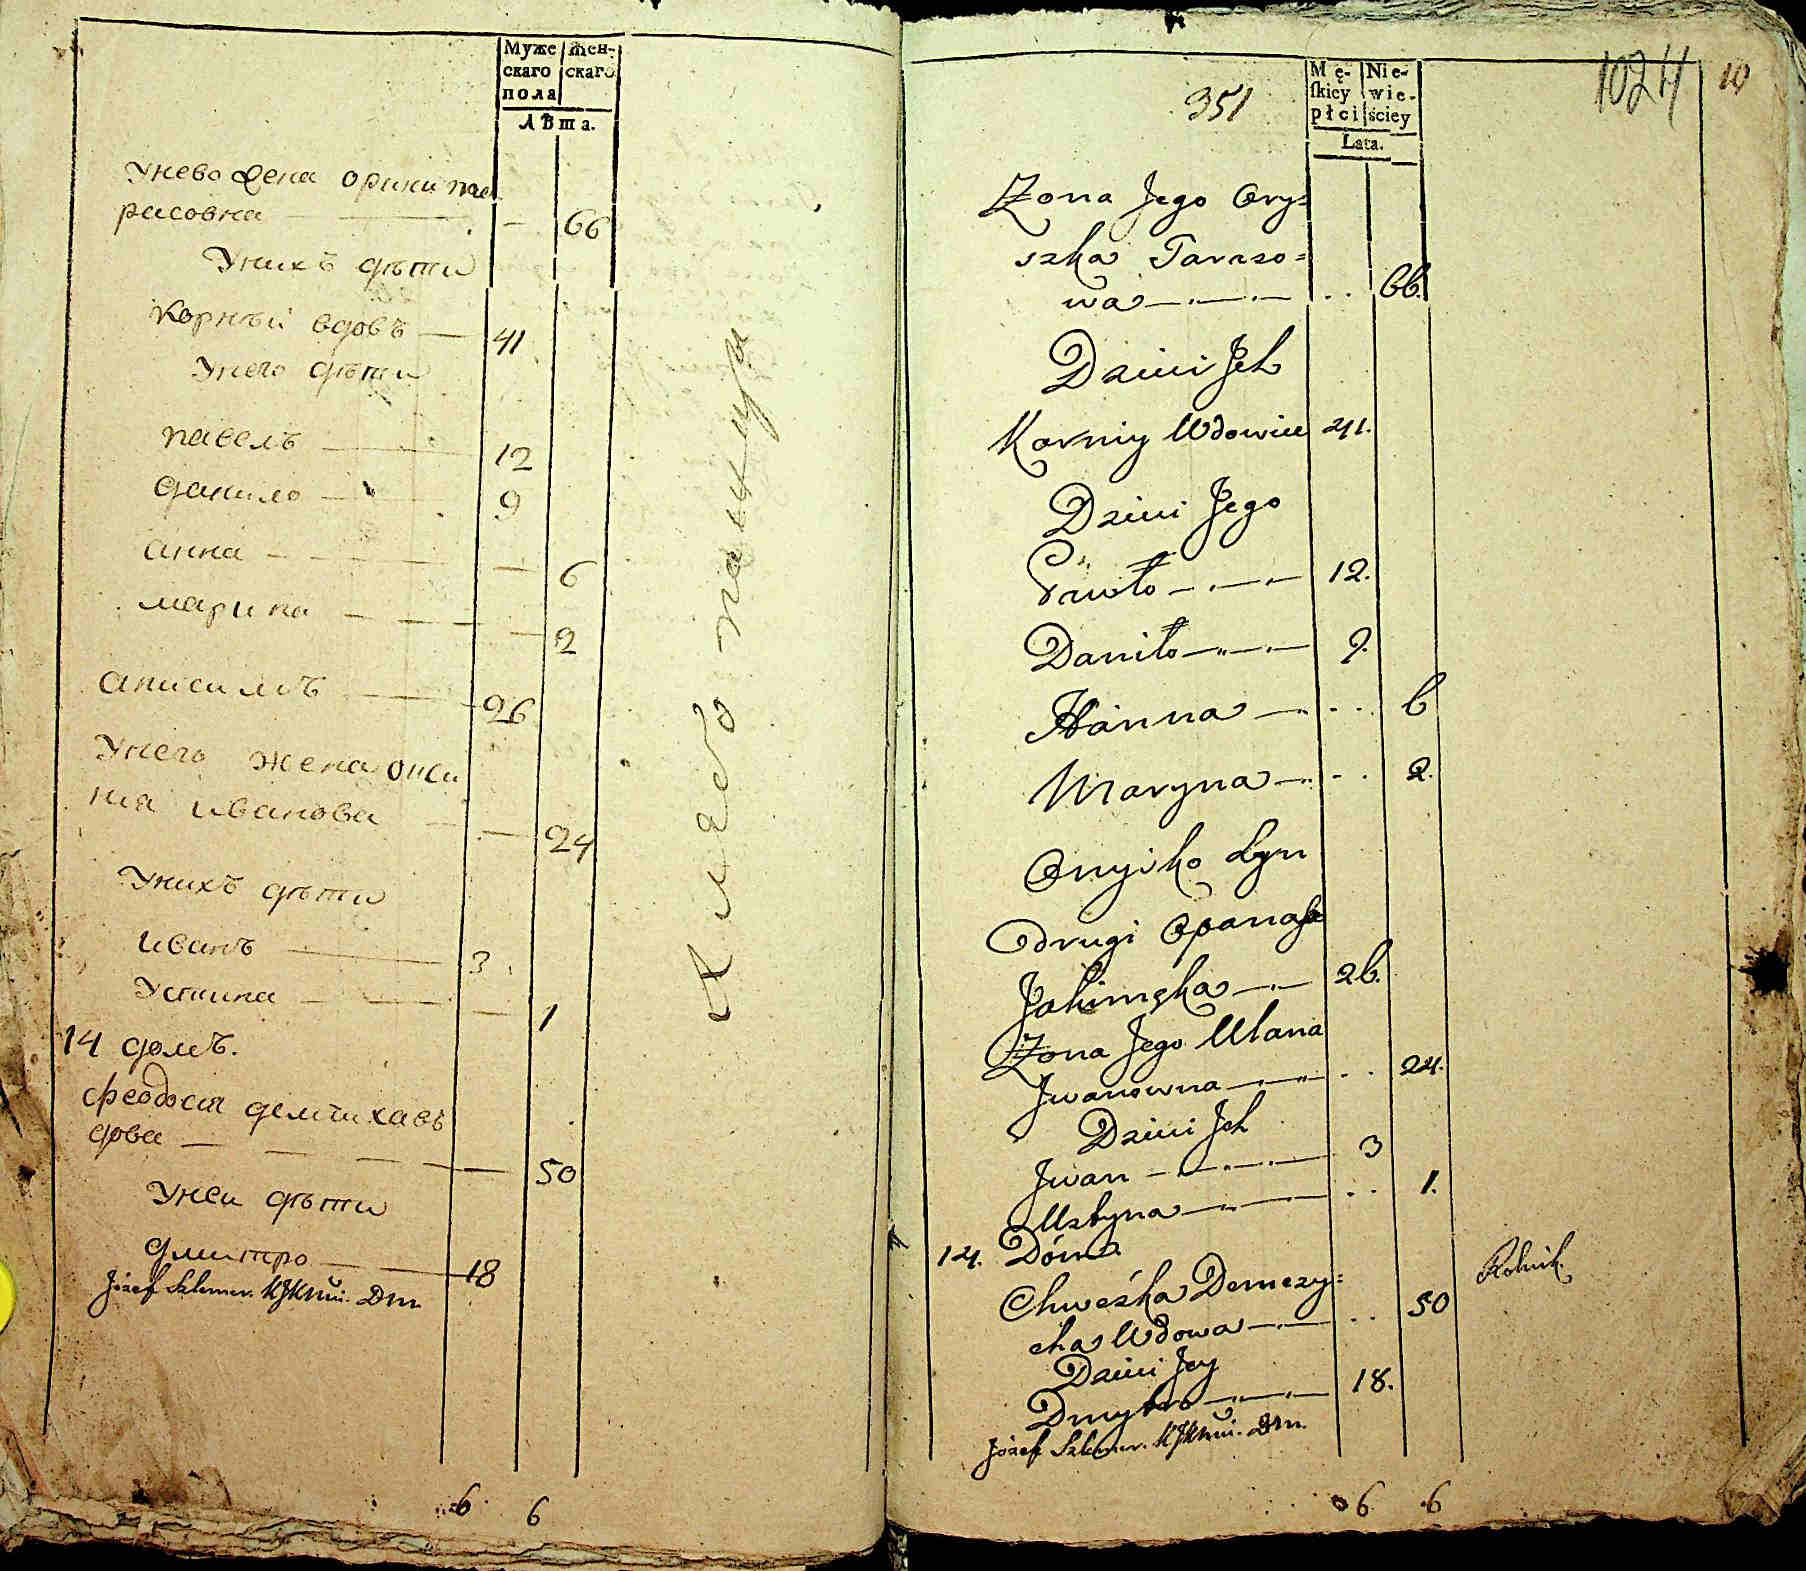 Муже
скаго
пола
жен-
скаго
лѣта.
унево жена орина та
расовна — 66
Унихъ дѣти
Корнѣй вдовъ — 41
Унего дѣти
павелъ — 12
данило — 9
анна — 6
марина — 2
анисимъ — 26
Унего жена
иванова — 24
Унихъ дѣти
иванъ — 3
устина — 1
14 домъ.
феодосия демчиха въ
дова — 50
Унеи дѣти
дмитро — 18
Józef
6 6
351
Mę-
ſkiey
płci
Nie-
wie-
ściey
Lata.
1024
10
Zona Jego Ory=
szka Taraso=
wa — 66.
Dzieci Jch
Korniy Wdowiec 41.
Dzieci Jego
Pawło — 12.
Daniło — 9.
Hanna — 6
Maryna — 2.
Onyśko Syn
drugi Opanasa
Jakimska — 26.
Zona Jego Ulana
Jwanowna — 24.
Dzieci Jch
Jwan — 3
Ustyna — 1.
14. Dóm
Chweśka Demczy=
cha Wdowa — 50
Rolnik.
Dzieci Jey
Dmytro — 18.
Józef
6 6